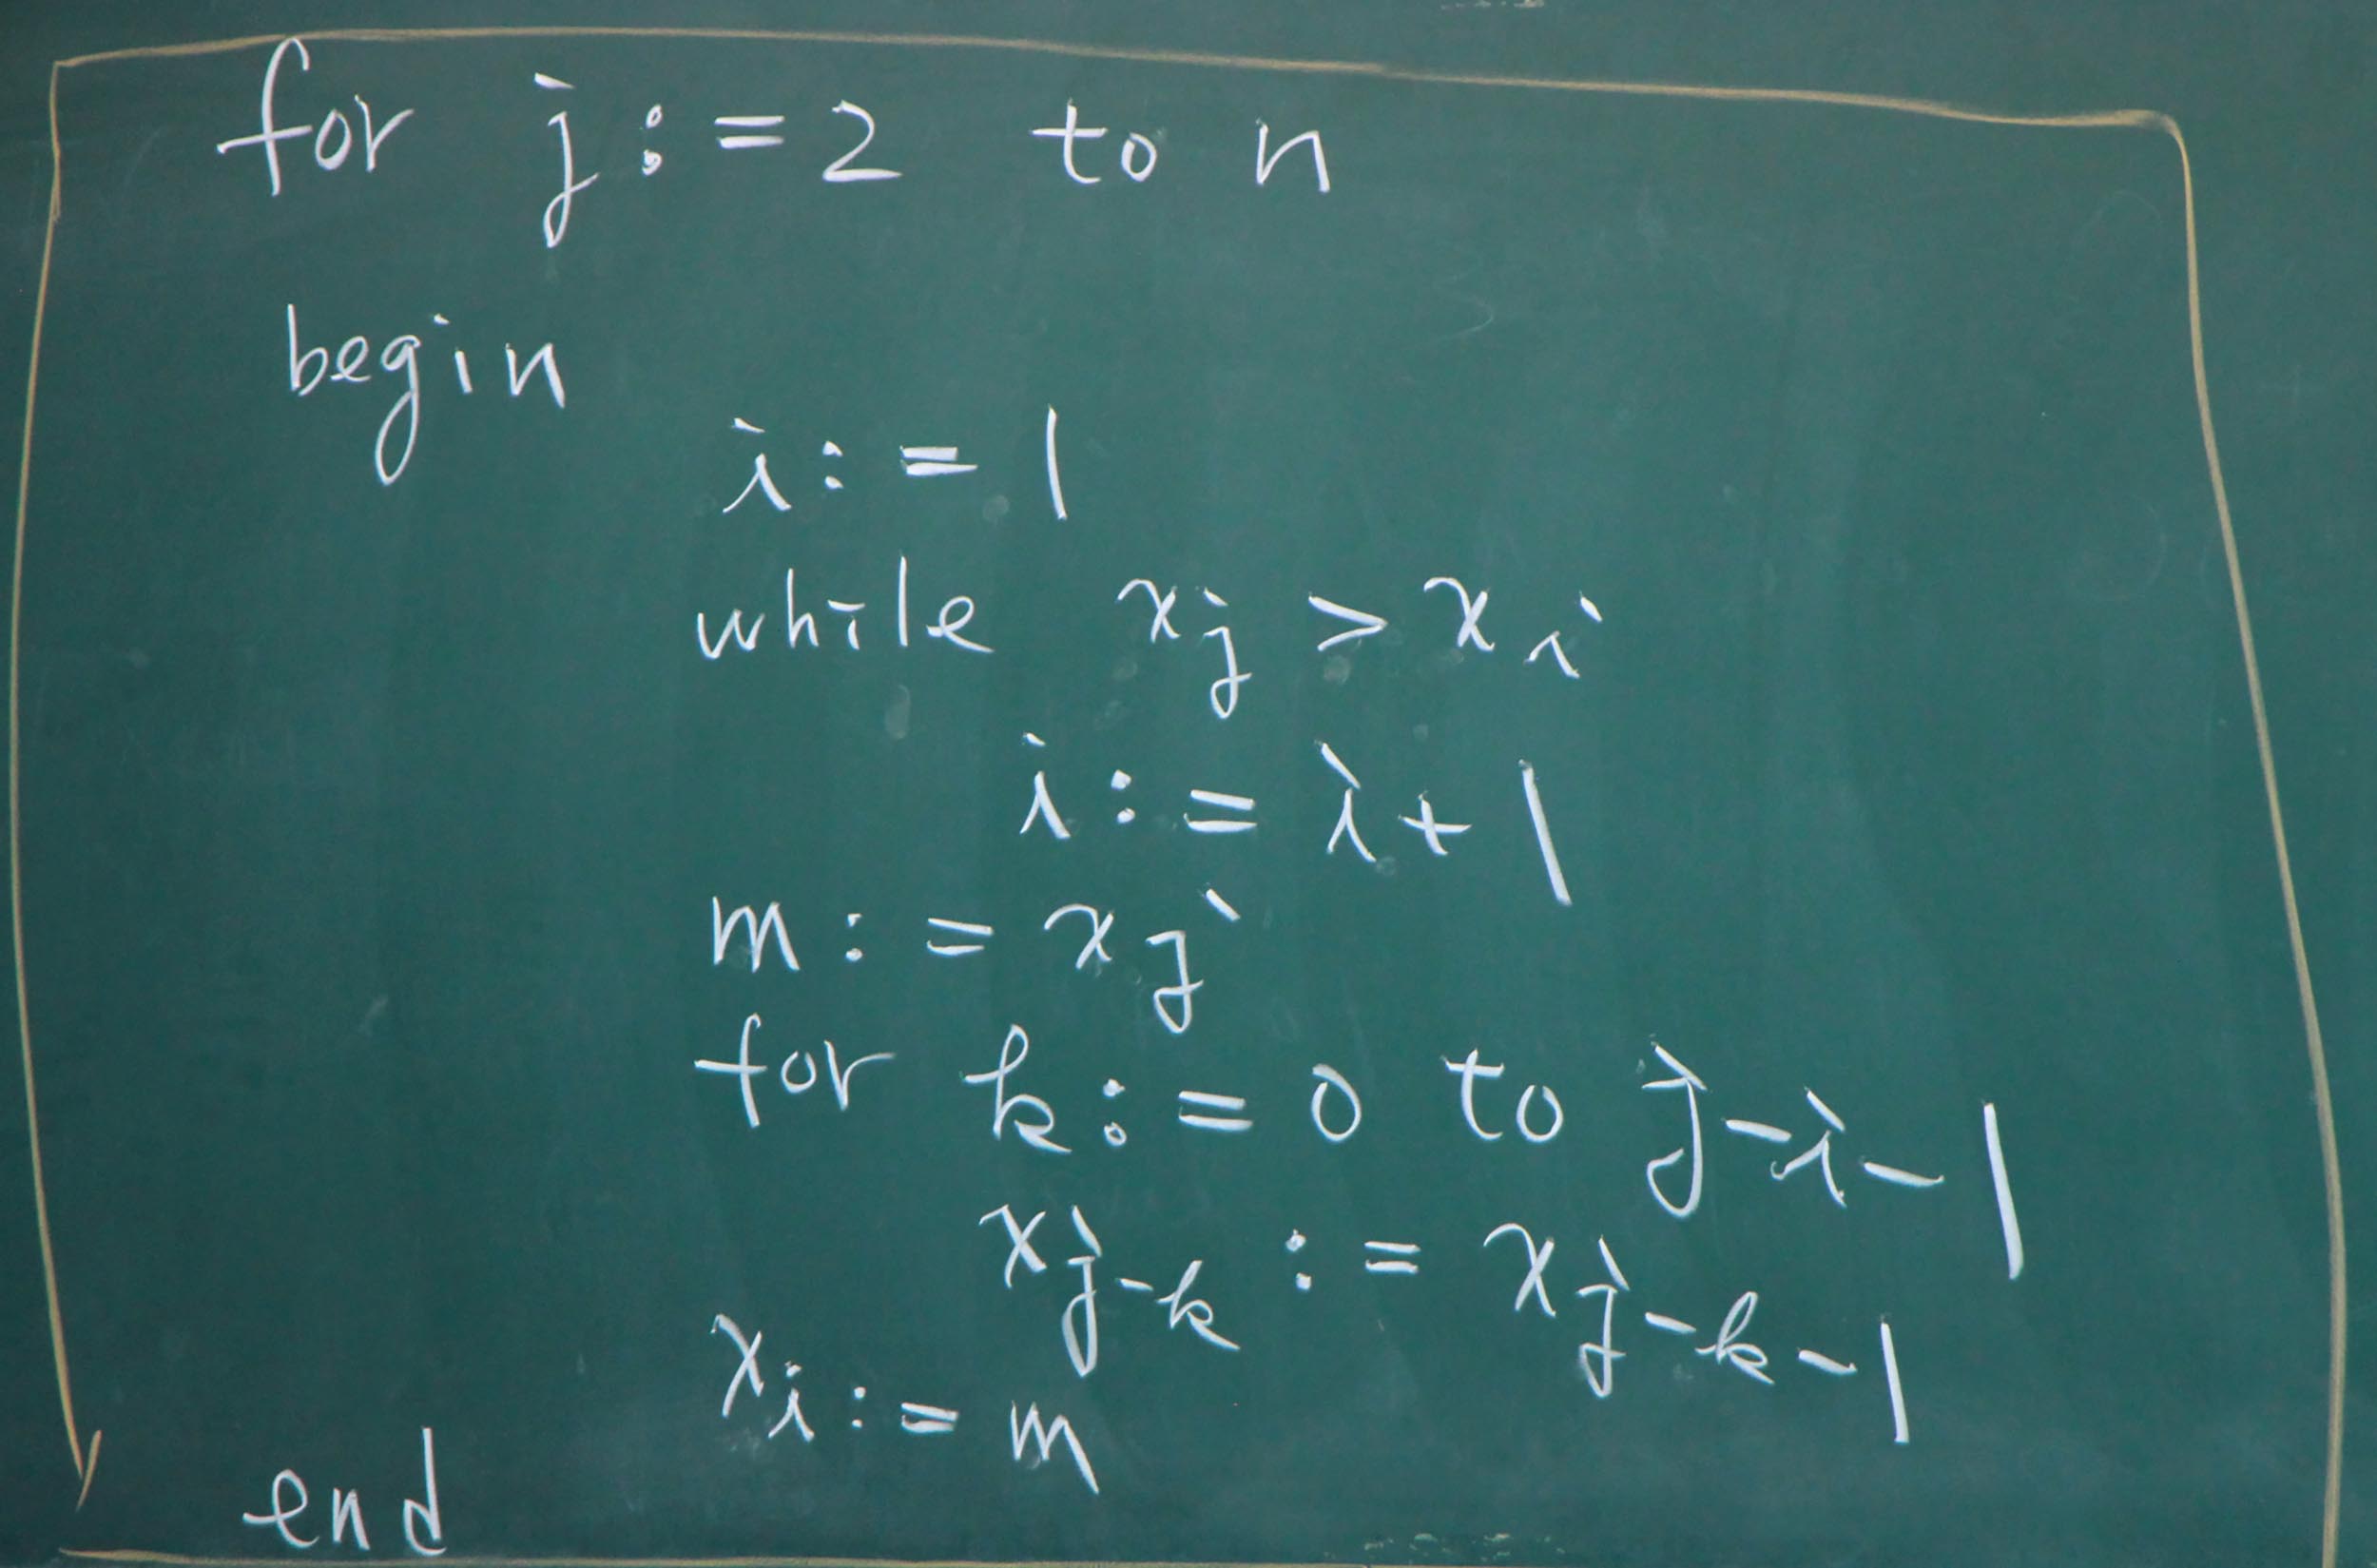 for j := 2 to n
begin
i := 1
while xj > xi
i := i + 1
m := xj
for k := 0 to j-i-1
xj-k := xj-k-1
xi := m
end